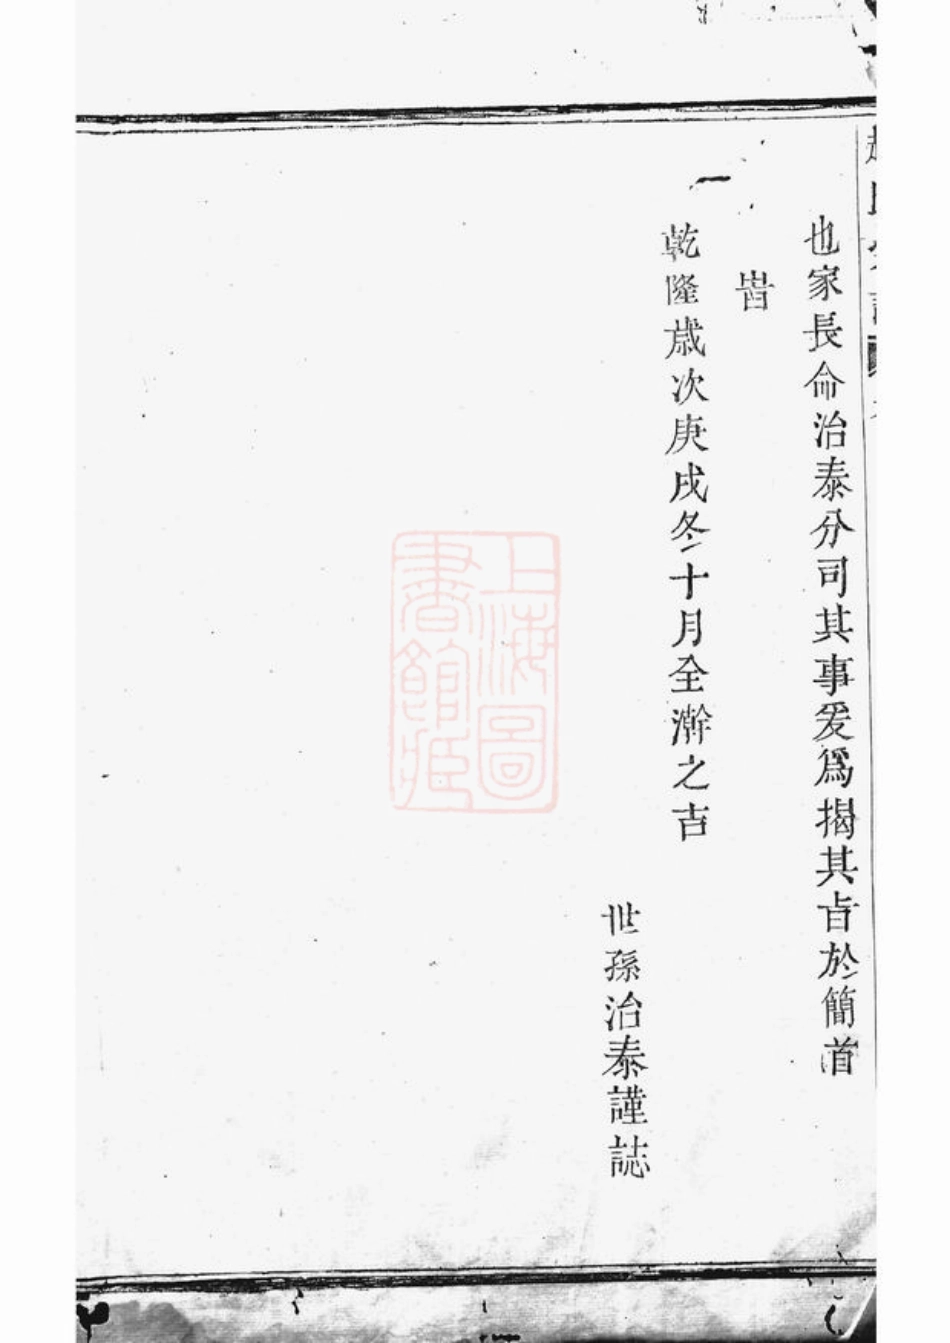 也家長命治泰分司其事爰爲揭其㫖於簡首
旹
乾隆歲次庚戌冬十月全澣之吉
世孫治泰謹誌
上海圖
書館藏